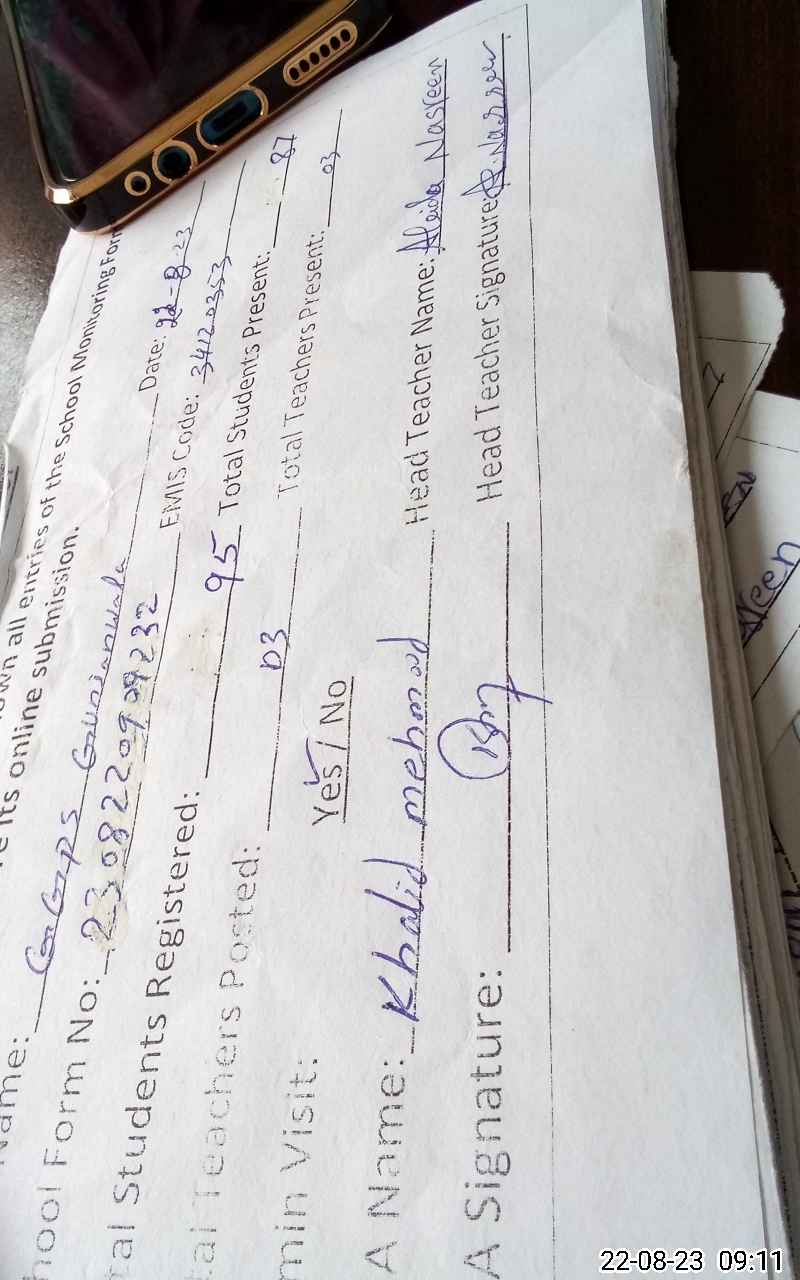 own all entries of the School Monitoring Form
its online submission.
ame: GGPS Gunianwala Date: 22-8-23
hool Form No: 2308220909232 EMIS Code: 34120353
tal Students Registered: 95 Total Students Present: 87
tal Teachers Posted: 03 Total Teachers Present: 03
min Visit: Yes / No
A Name: Khalid mehmood Head Teacher Name: Nasreen
A Signature: Head Teacher Signature:
22-08-23 09:11